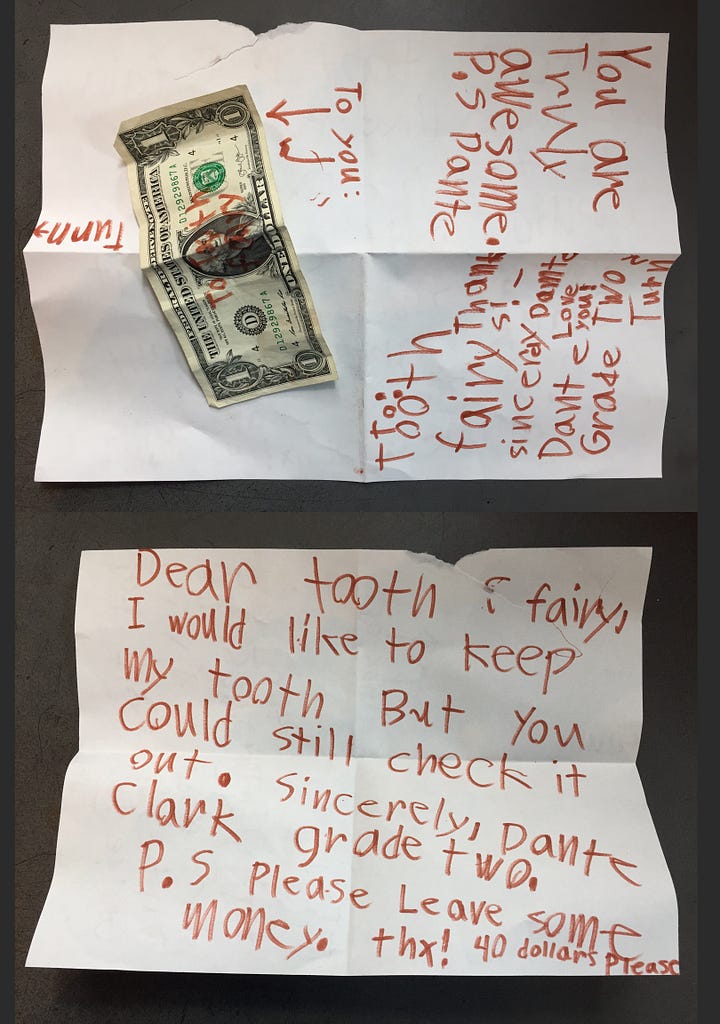 You are
Truly
awesome.
P.S Dante
To you:
Turn
To:
Tooth
fairy Thanks! -
sincerely Dante
Dante Love you!
Grade Two
Turn
THE UNITED STATES OF AMERICA
D 12929867 A
D 12929867 A
Tooth
fairy
1
1
1
1
4
4
4
4
D
Dear tooth fairy,
I would like to keep
my tooth But you
Could still check it
out. Sincerely, Dante
Clark grade two.
P.S Please Leave some
money. thx! 40 dollars Please